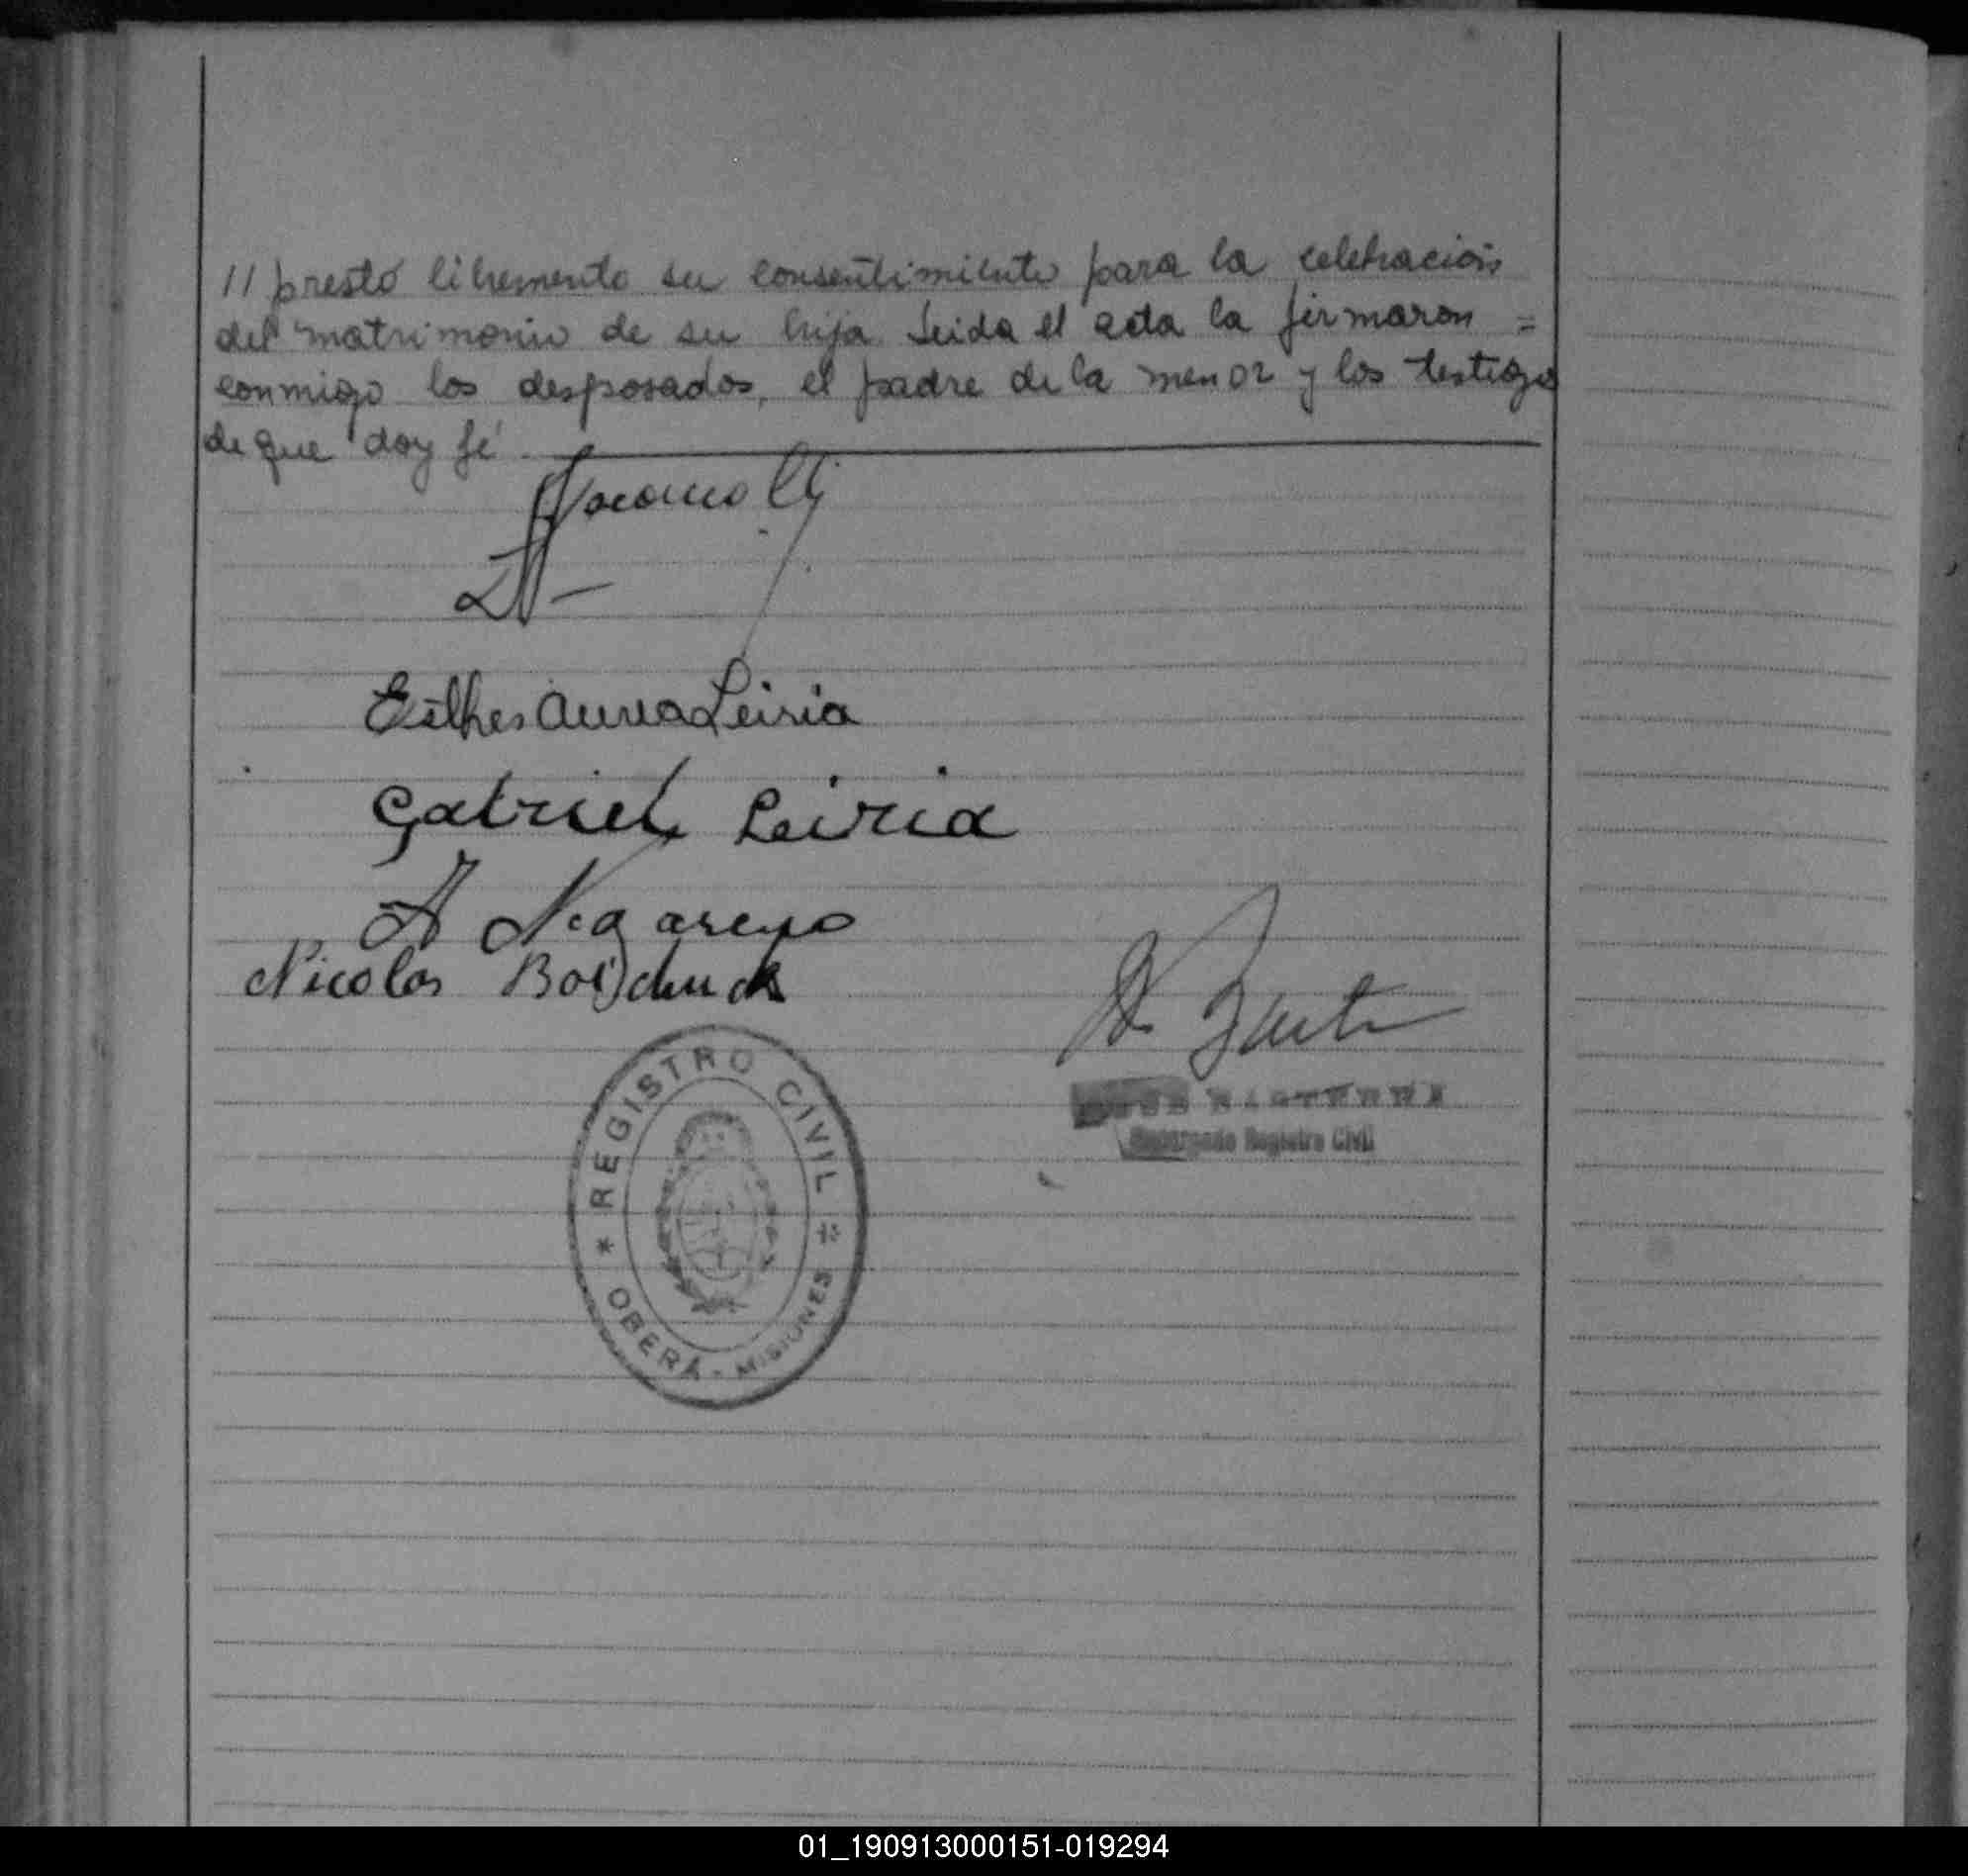 // prestó libremente su consentimiento para la celebración
del matrimonio de su hija. Leida el acta la firmaron =
conmigo los desposados, el padre de la menor y los testigos
de que doy fé.
Esther Aurea Leiria
Gabriel Leiria
A
Nicolas Boijchuck
REGISTRO CIVIL
* OBERÁ - MISIONES *
Encargado Registro Civil
01_190913000151-019294